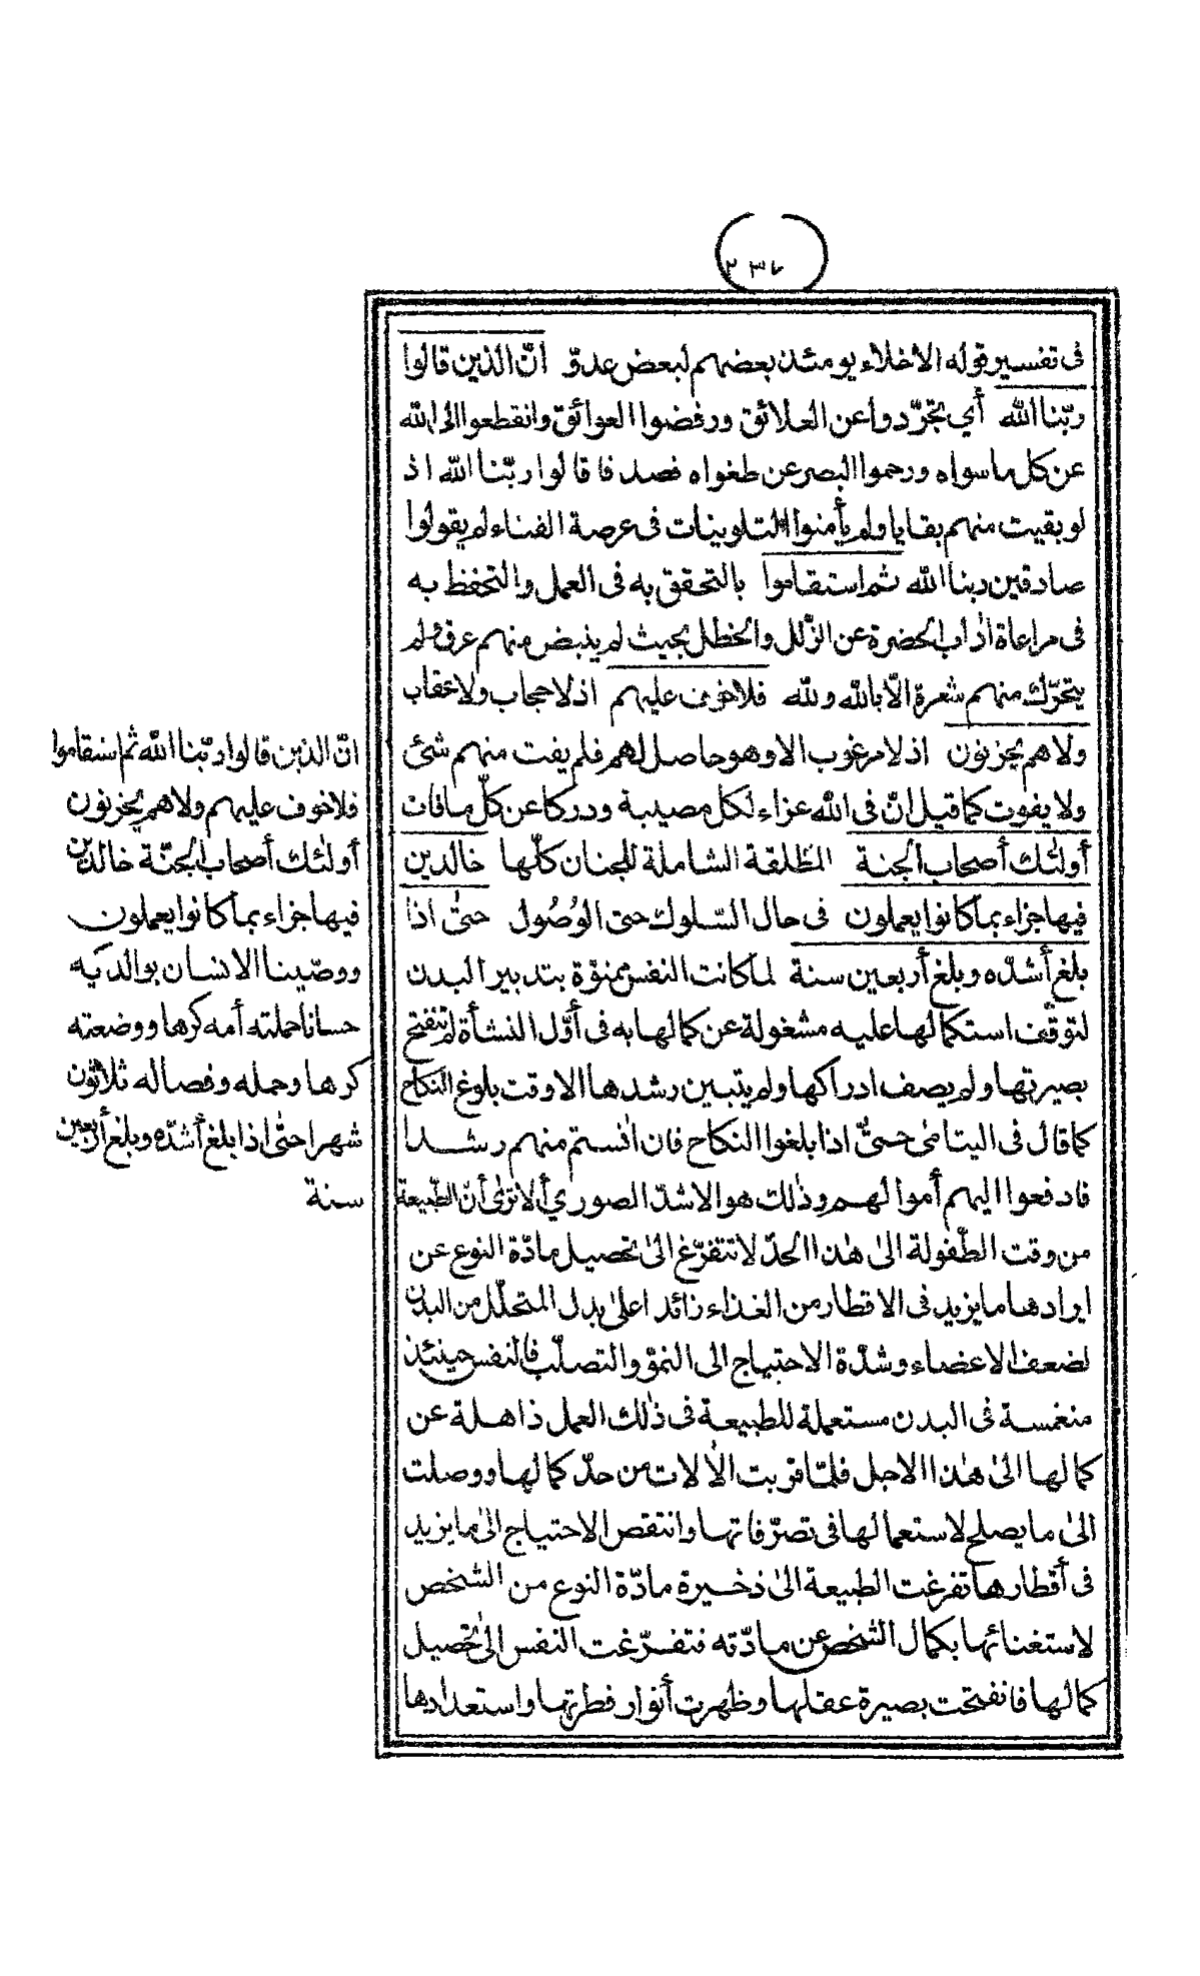 ٢٣٧
فى تفسير قوله الاخلاء يومئذ بعضهم لبعض عدوّ انّ الذين قالوا
ربّنا الله أي تجرّدوا عن العلائق ورفضوا العوائق وانقطعوا الى الله
عن كل ما سواه ورحموا البصر عن طغواه فصدفا قالوا ربّنا الله اذ
لو بقيت منهم بقايا ولم يأمنوا التلوينات فى عرصة الفناء لم يقولوا
صادقين ربنا الله ثم استقاموا بالتحقق به فى العمل والتحفظ به
فى مراعاة اٰداب الحضرة عن الزّلل والخطل بحيث لم ينبض منهم عرق ولم
يتحرّك منهم شعرة الّا بالله ولله فلا خوف عليهم اذ لا حجاب ولا عقاب
ولا هم يحزنون اذ لا مرغوب الا وهو حاصل لهم فلم يفت منهم شئ
ولا يفوت كما قيل انّ فى الله عزاء لكل مصيبة ودركا عن كلّ ما فات
أولئك أصحاب الجنة المطلقة الشاملة للجنان كلّها خالدين
فيها جزاء بما كانوا يعملون فى حال السّلوك حتى الوُصُول حتىٰ اذا
بلغ أشدّه وبلغ أربعين سنة لما كانت النفس ممنوّة بتدبير البدن
لتوقّف استكمالها عليه مشغولة عن كمالها به فى أوّل النشأة لم تنفتح
بصيرتها ولم يصف ادراكها ولم يتبين رشدها الا وقت بلوغ النكاح
كما قال فى اليتامٰى حتىّٰ اذا بلغوا النكاح فان اٰنستم منهم رشدا
فادفعوا اليهم أموالهم وذٰلك هو الاشدّ الصوري ألا ترىٰ أنّ الطّبيعة
من وقت الطّفولة الىٰ هٰذا الحدّ لا تتفرّغ الىٰ تحصيل مادّة النوع عن
ايرادها ما يزيد فى الاقطار من الغذاء زائدا علىٰ بدل المتحلّل من البدن
لضعف الاعضاء وشدّة الاحتياج الى النموّ والتصلّب فالنفس حينئذ
منغمسة فى البدن مستعملة للطبيعة فى ذٰلك العمل ذاهلة عن
كمالها الىٰ هٰذا الاجل فلمّا قربت الاٰلات من حدّ كمالها ووصلت
الىٰ ما يصلح لاستعمالها فى تصرّفاتها وانتقص الاحتياج الىٰ ما يزيد
فى أقطارها تفرغت الطبيعة الىٰ ذخيرة مادّة النوع من الشخص
لاستغنائها بكمال الشخص عن مادّته فتفرّغت النفس الىٰ تحصيل
كمالها فانفتحت بصيرة عقلها وظهرت أنوار فطرتها واستعدادها
انّ الذين قالوا ربّنا الله ثم استقاموا
فلا خوف عليهم ولا هم يحزنون
أولٰئك أصحاب الجنّة خالدين
فيها جزاء بما كانوا يعملون
ووصّينا الانسان بوالديه
حسانا حملته أمه كرها ووضعته
كرها وحمله وفصاله ثلاثون
شهرا حتىٰ اذا بلغ أشدّه وبلغ أربعين
سنة